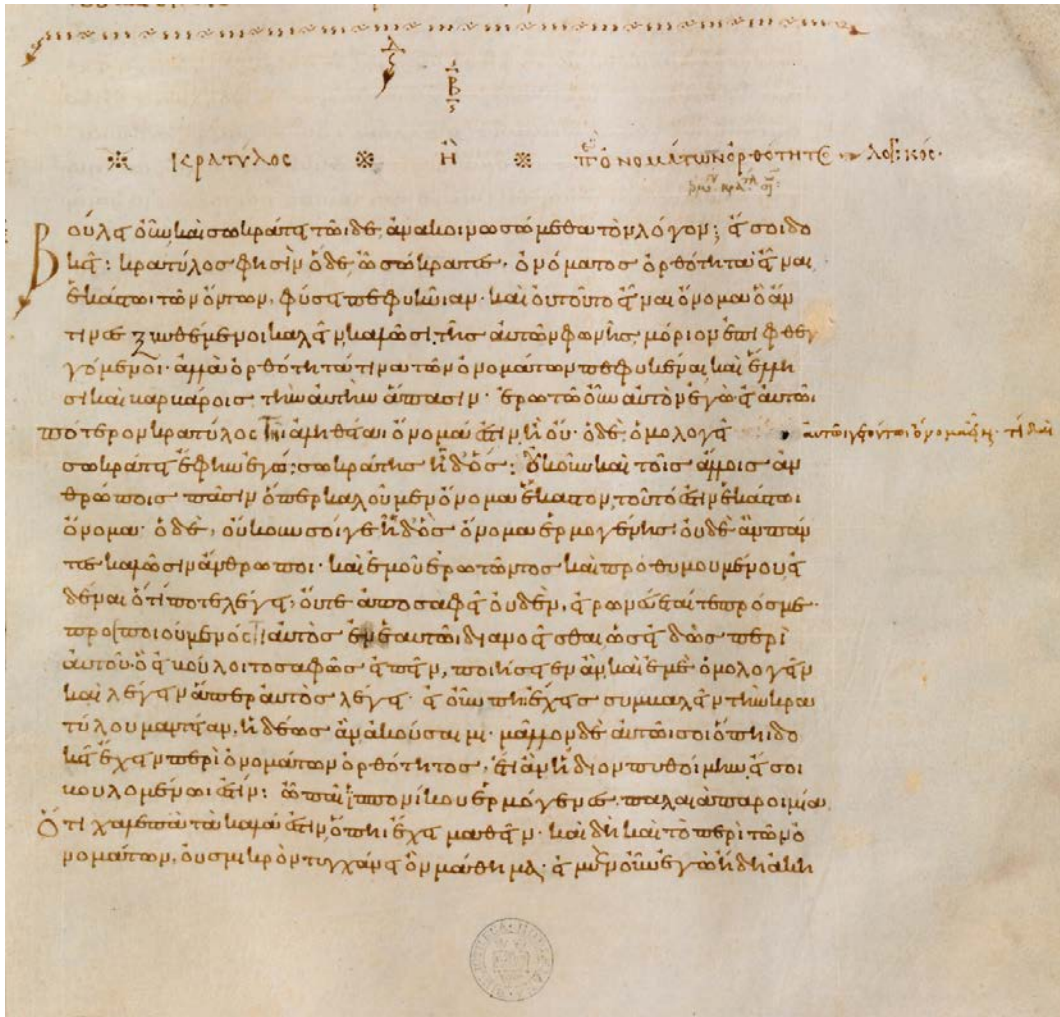 Β
ΚΡΑΤΥΛΟΣ Ἢ περὶ ὀνομάτων ὀρθότητος λογικός·
Βούλει οὖν καὶ σωκράτει τῶιδε ἀνακοινωσώμεθα τὸν λόγον; εἴ σοι δο
κεῖ: κρατύλος φησὶν ὅδε ὦ σώκρατες· ὀνόματος ὀρθότητα εἶναι
ἑκάστωι τῶν ὄντων, φύσει πεφυκυῖαν· καὶ οὐ τοῦτο εἶναι ὄνομα ὃ ἄν
τινες ξυνθέμενοι καλεῖν, καλῶσι, τῆς αὑτῶν φωνῆς μόριον ἐπιφθεγ
γόμενοι· ἀλλὰ ὀρθότητά τινα τῶν ὀνομάτων πεφυκέναι καὶ ἕλλη
σι καὶ βαρβάροις τὴν αὐτὴν ἅπασιν· ἐρωτῶ οὖν αὐτὸν ἐγὼ εἰ αὐτῶι
πότερον κρατύλος τῆι ἀληθείαι ὄνομά ἐστιν ἢ οὔ· ὁ δὲ ὁμολογεῖ
σωκράτει ἔφην ἐγώ; σωκράτης ἦ δ' ὅς: οὐκοῦν καὶ τοῖς ἄλλοις ἀν
θρώποις πᾶσιν ὅπερ καλοῦμεν ὄνομα ἕκαστον, τοῦτό ἐστιν ἑκάστωι
ὄνομα· ὁ δὲ, οὔκουν σοί γε ἦ δ' ὃς ὄνομα ἑρμογένης· οὐδὲ ἂν πάν
τες καλῶσιν ἄνθρωποι· καὶ ἐμοῦ ἐρωτῶντος καὶ προθυμουμένου εἰ
δέναι ὅτι ποτὲ λέγει, οὔτε ἀποσαφεῖ οὐδὲν, εἰρωνεύεταί τε πρός με·
προσποιούμενός τι αὐτὸς ἐν ἑαυτῶι διανοεῖσθαι ὡς εἰδὼς περὶ
αὐτοῦ· ὃ εἰ βούλοιτο σαφῶς εἰπεῖν, ποιήσειεν ἂν καὶ ἐμὲ ὁμολογεῖν
καὶ λέγειν ἅπερ αὐτὸς λέγει· εἰ οὖν πηι ἔχεις συμβαλεῖν τὴν κρα
τύλου μαντείαν, ἡδέως ἂν ἀκούσαιμι· μᾶλλον δὲ αὐτῶι σοι ὅπηι δο
κεῖ ἔχειν περὶ ὀνομάτων ὀρθότητος, ἔτι ἂν ἥδιον πυθοίμην, εἴ σοι
βουλομένωι ἐστίν: ὦ παῖ ἱππονίκου ἑρμόγενες, παλαιὰ παροιμία
ὅτι χαλεπὰ τὰ καλά ἐστιν ὅπηι ἔχει μαθεῖν· καὶ δὴ καὶ τὸ περὶ τῶν ὀ
νομάτων, οὐ σμικρὸν τυγχάνει ὂν μάθημα· εἰ μὲν οὖν ἐγὼ ἤδη ἀκη